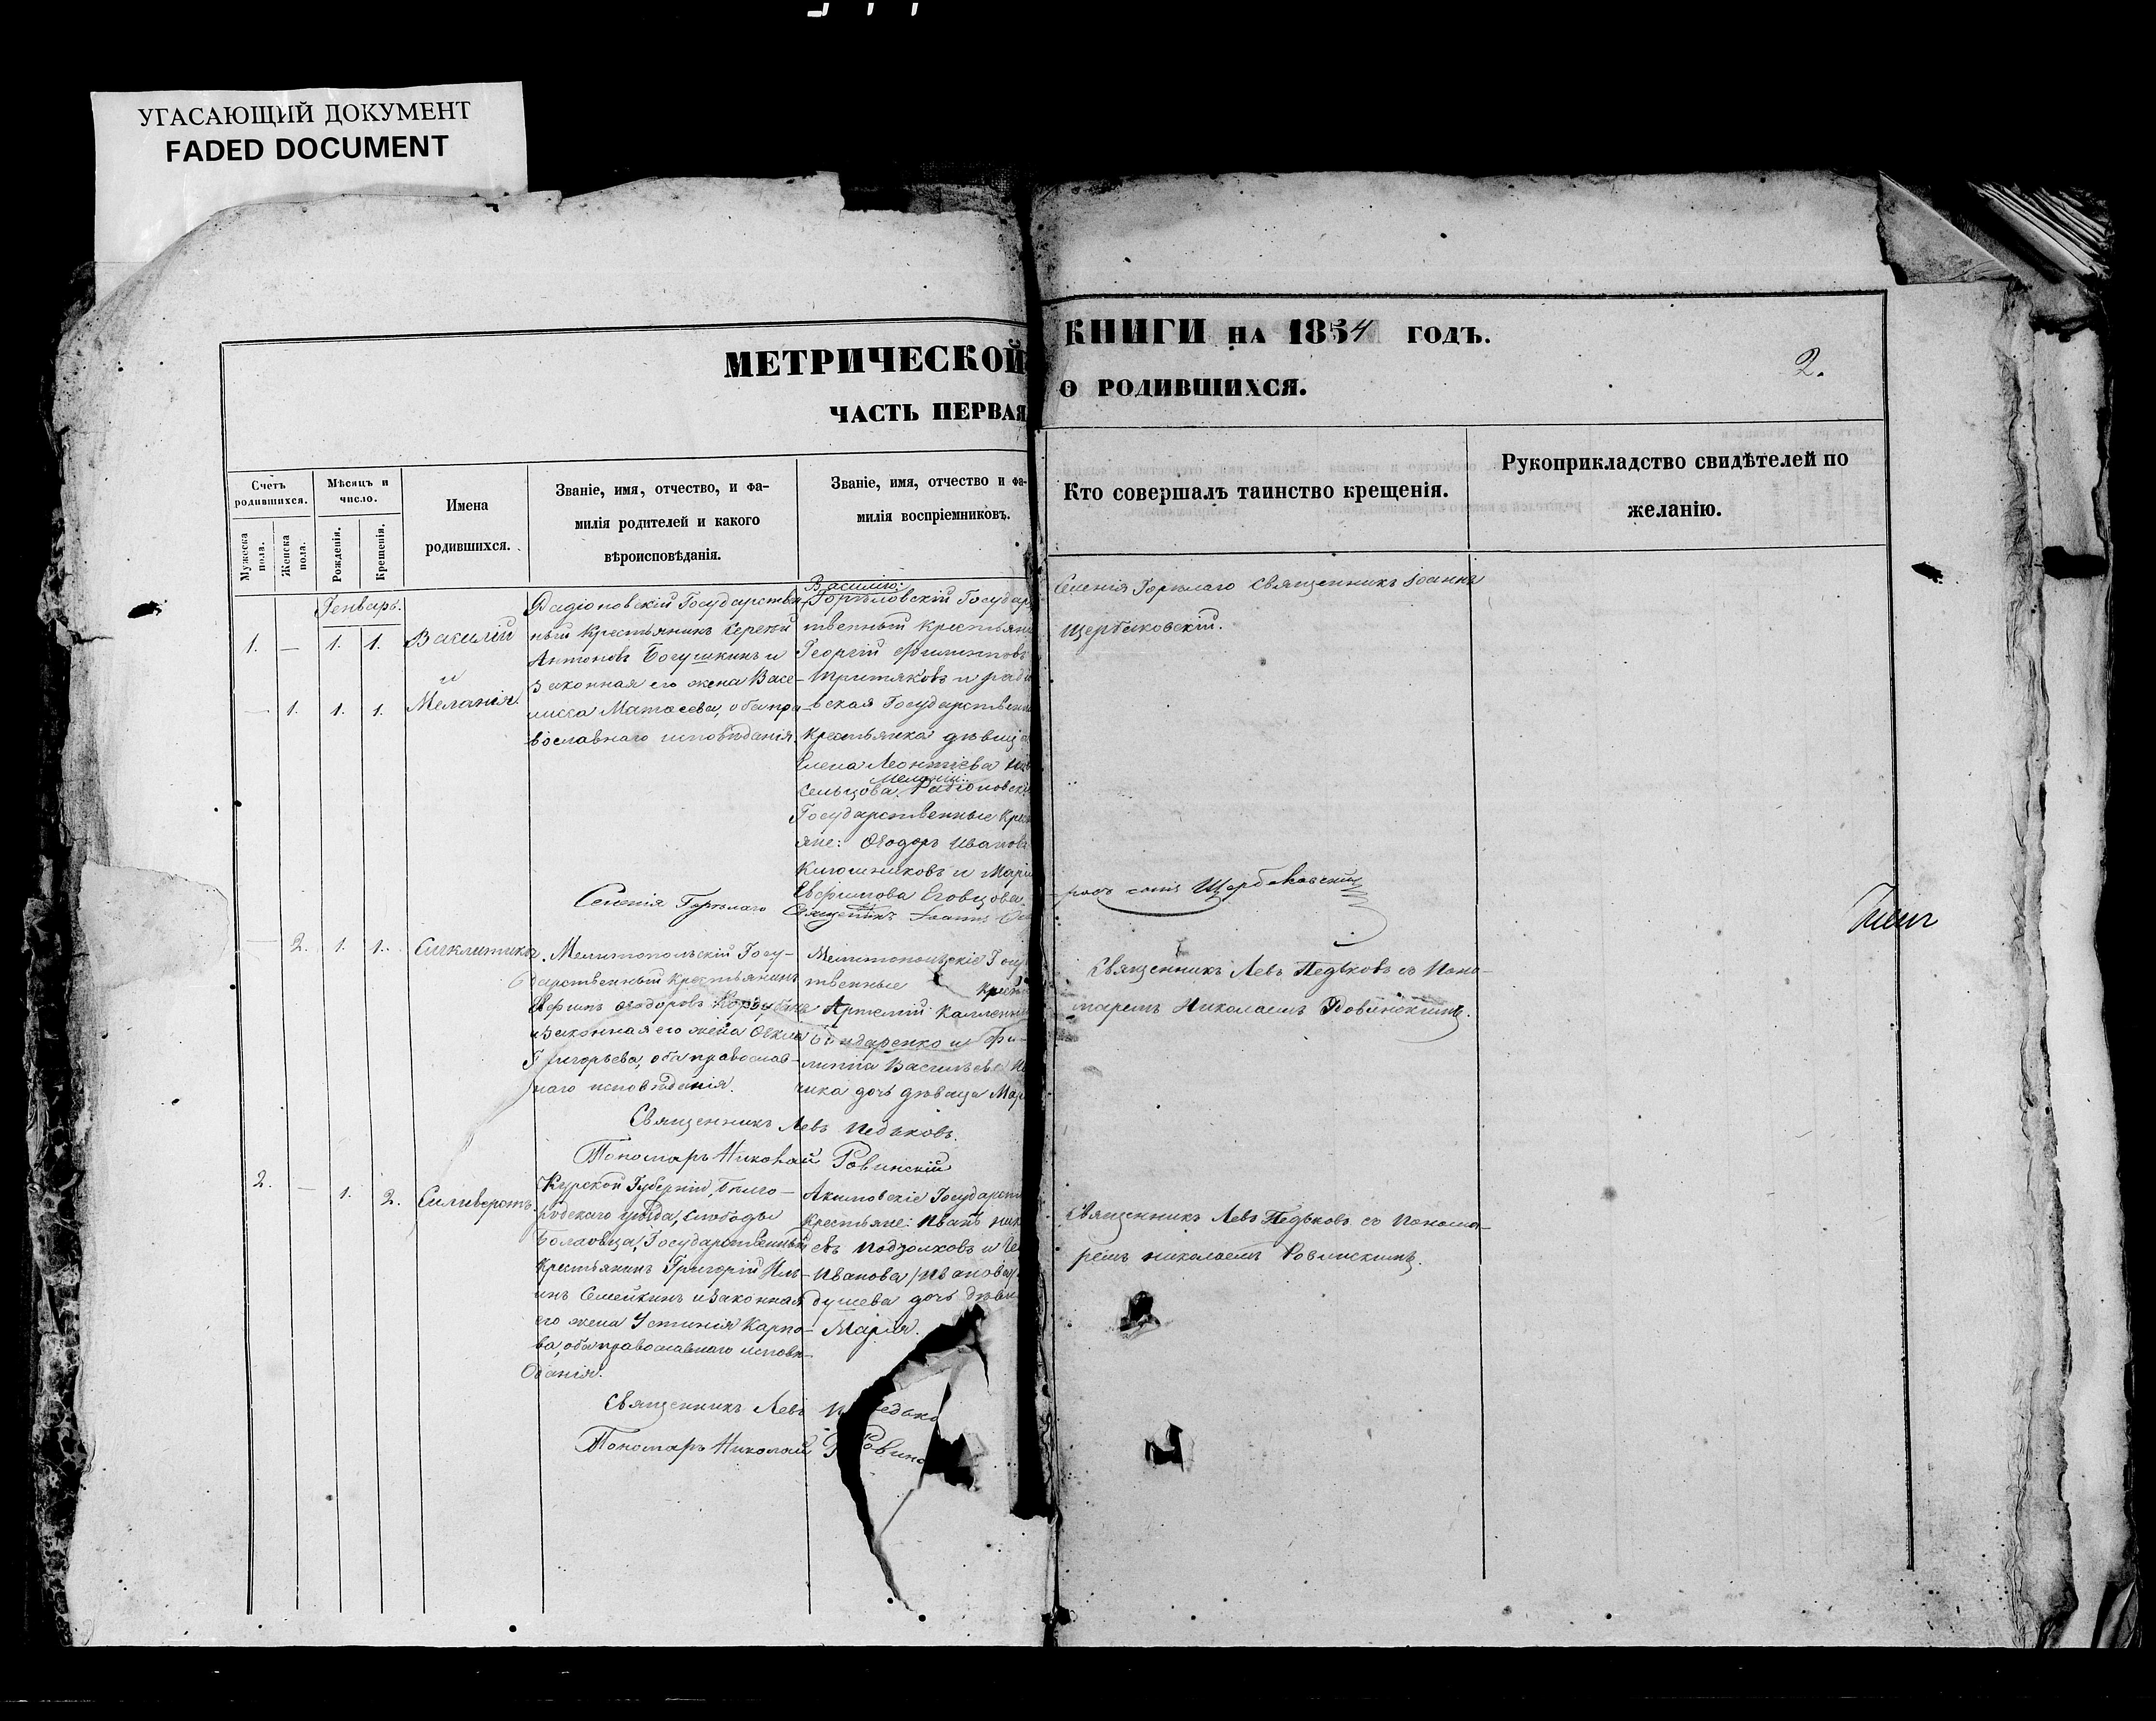 УГАСАЮЩИЙ ДОКУМЕНТ
FADED DOCUMENT
МЕТРИЧЕСКОЙ КНИГИ НА 1854 ГОДЪ.
2.
ЧАСТЬ ПЕРВАЯ О РОДИВШИХСЯ.
Счетъ родившихся.
Мужеска пола.
Женска пола.
Мѣсяцъ и число.
Рожденія.
Крещенія.
Имена
родившихся.
Званіе, имя, отчество, и фа-
милія родителей и какого
вѣроисповѣданія.
Званіе, имя, отчество и фа-
милія воспріемниковъ.
Кто совершалъ таинство крещенія.
Рукоприкладство свидѣтелей по
желанію.
Генварь.
1. — 1. 1. Василій
и
— 1. 1. 1. Меланія.
Радіоновскій Государствен-
ный Крестьянинъ Сергѣй
Антоновъ Богушкинъ и
Законная его жена Васе-
лисса Матѳеева, оба пра-
вославнаго исповѣданія.
Василію:
Горѣловскій Государ
твенный Крестьяни
Георгій Филиповъ
Третяковъ и
вская Государствен
крестьянка дѣвица
Елена Леонтіева
сельцова. Меланіи: Радіоновскі
Государственные Крест
яне: Ѳеодоръ Иванов
Ключниковъ и Марі
Евфимова Еговцова.
Селенія Горѣлаго Священникъ Іоаннъ
Щербаковскій.
Селенія Горѣлаго Священникъ Іоаннъ
Щербаковскій
— 2. 1. 1. Сигклитикія.
Мелитопольскій Госу-
дарственный Крестьянинъ
Евфимъ Ѳеодоровъ
и Законная его жена Ѳекла
Григорьева, оба православ-
наго исповѣданія.
Мелитопольскіе Госу
твенные Крест
Артемій
Бондаренко и Фи-
липпа Васильева
дочь дѣвица Мар
Священникъ Левъ Педьковъ съ Поно-
маремъ Николаемъ Ровинскимъ.
Священникъ Левъ Педьковъ.
Пономарь Николай Ровинскій
2. — 1. 2. Сильверстъ.
Курской Губерніи, Бѣлго-
родскаго уѣзда, слободы
Болховца, Государственный
Крестьянинъ Григорій Иль-
инъ Семейкинъ и Законная
его жена Устинія Карпо-
ва, оба православнаго исповѣ-
данія.
Акимовскіе Государст
Крестьяне: Иванъ
евъ Подзолковъ и
Иванова /Иванова/
душева дочь дѣви
Марія.
Священникъ Левъ Педьковъ съ Понома-
ремъ Николаемъ Ровинскимъ.
Священникъ Левъ
Пономарь Николай Ровинс